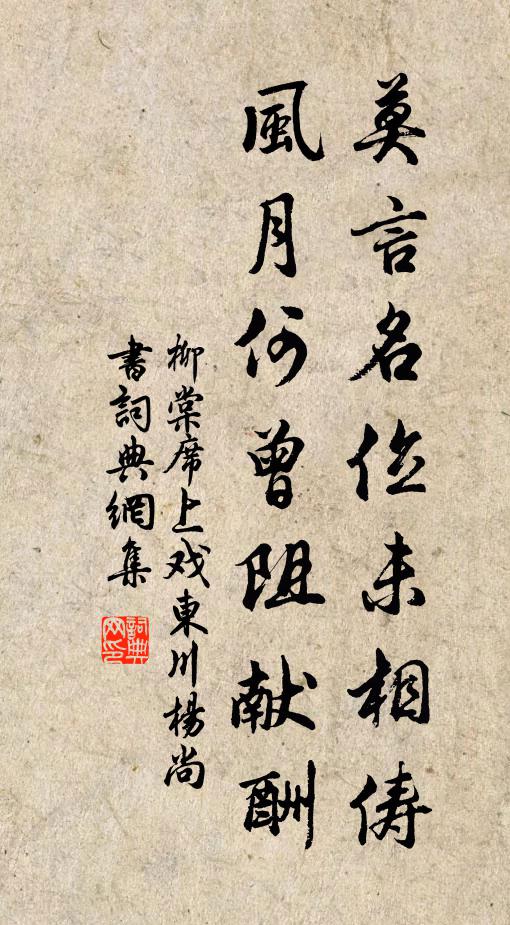 莫言名位未相俦
風月何曾阻献酬
柳棠席上戏東川楊尚
書詞典網集
詞典网印